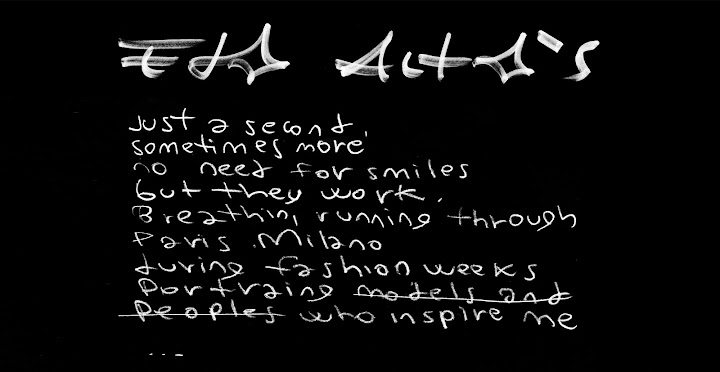 Just a second,
sometimes more
no need for smiles
but they work.
Breathin, running through
Paris. Milano
during fashion weeks
portraing models and
peoples who inspire me
...